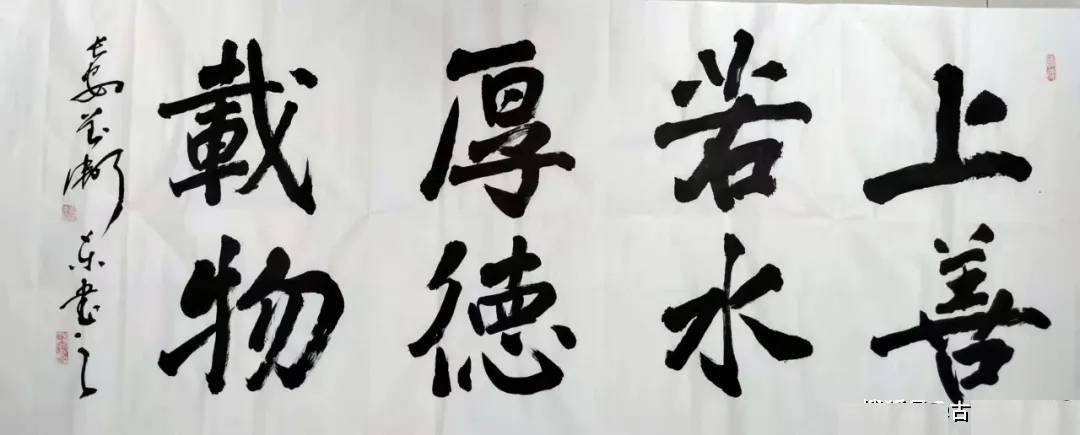 上善
若水
厚德
載物
書之
古